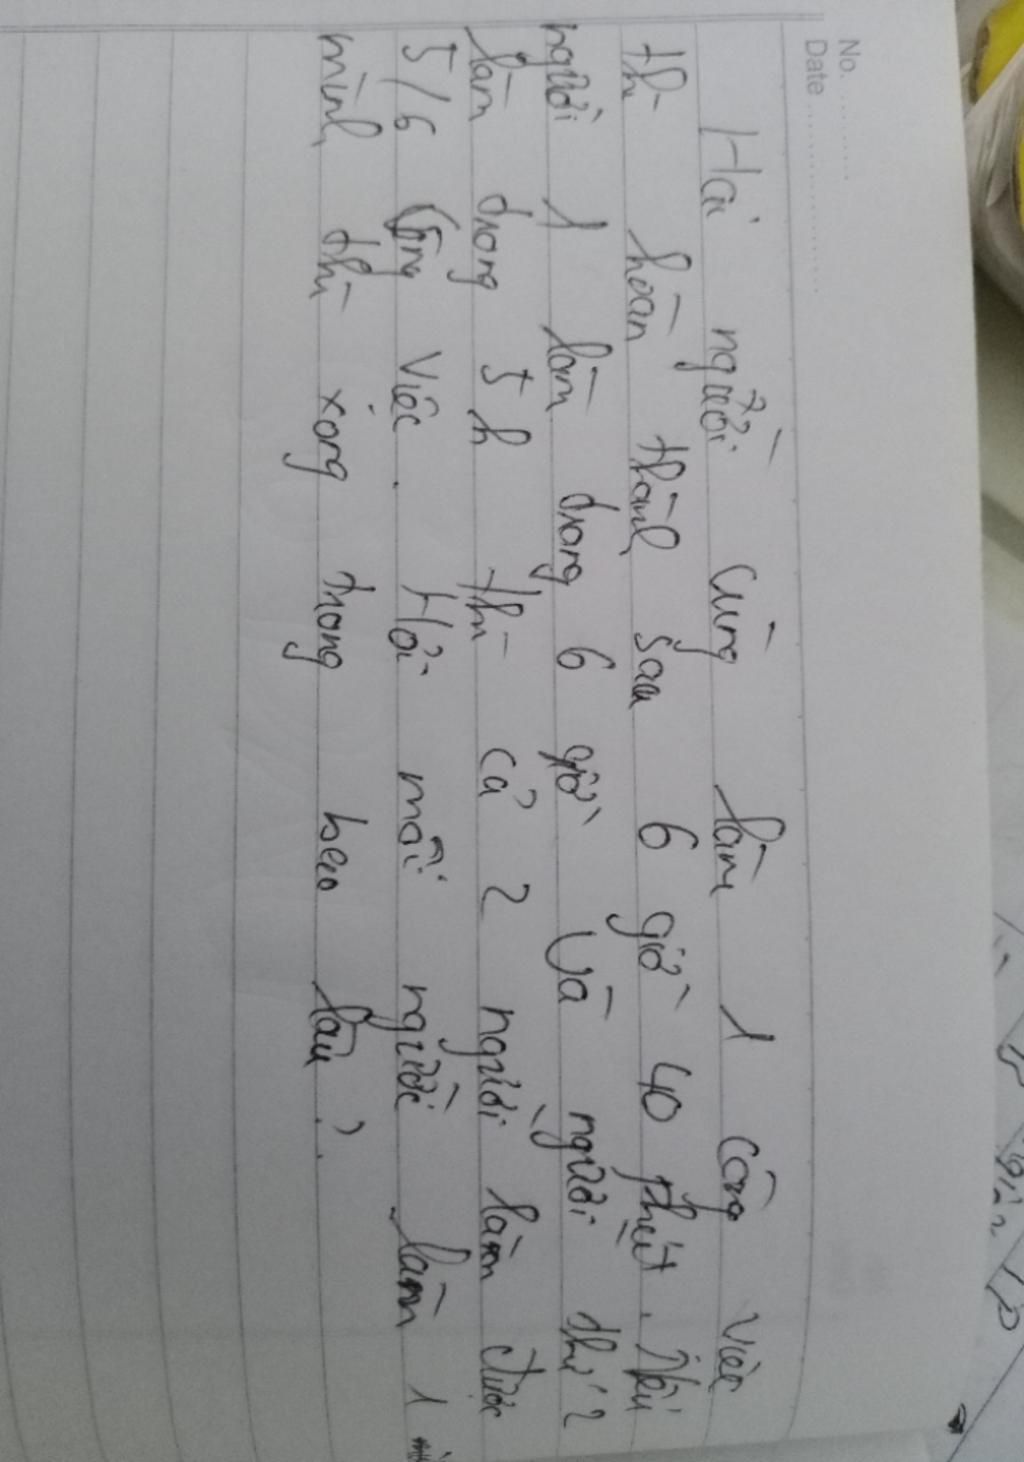 No. ............
Date ........................
Hai người cùng làm 1 công việc
thì hoàn thành sau 6 giờ 40 phút. Nếu
người 1 làm trong 6 giờ và người thứ 2
làm trong 5h thì cả 2 người làm được
5/6 công việc. Hỏi mỗi người làm 1
mình thì xong trong bao lâu?